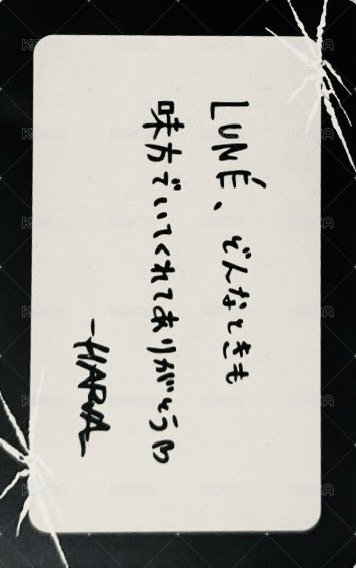 LUNÉ、どんなときも
味方でいてくれてありがとう♡
-HARUA